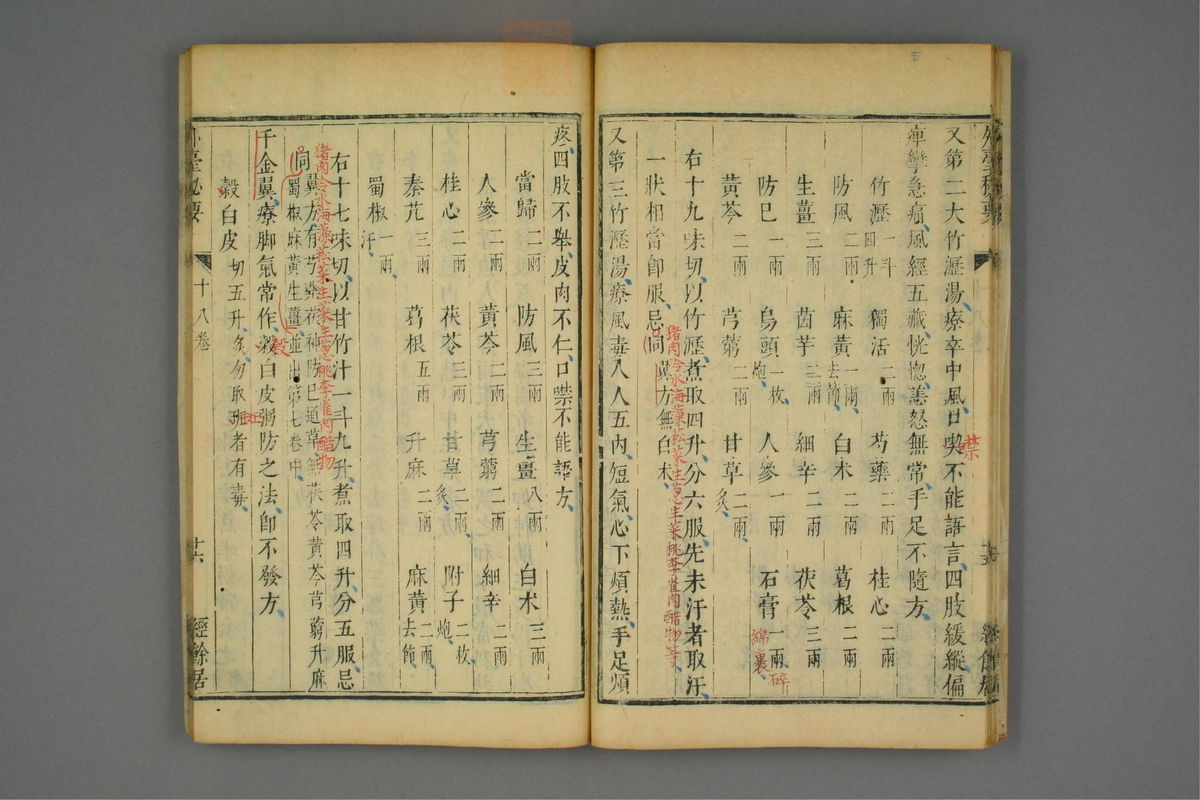 又第二大竹瀝湯療卒中風口喫不能語言四肢緩縱偏
禁
痺攣急痛風經五藏恍惚恚怒無常手足不隨方
竹瀝一斗四升 獨活二兩 芍藥二兩 桂心二兩
防風二兩 麻黃一兩去節 白朮二兩 葛根二兩
生薑三兩 茵芋二兩 細辛二兩 茯苓三兩
防巳一兩 烏頭一枚炮 人參一兩 石膏一兩碎
綿裹
黃芩二兩 芎藭二兩 甘草二兩炙
右十九味切以竹瀝煮取四升分六服先未汗者取汗
一狀相當即服忌同翼方無白朮
猪肉冷水海藻菘菜生葱生菜桃李雀肉醋物等
又第三竹瀝湯療風毒入人五內短氣心下煩熱手足煩
疼四肢不舉皮肉不仁口噤不能語方
當歸二兩 防風三兩 生薑八兩 白朮三兩
人參二兩 黃芩二兩 芎藭二兩 細辛二兩
桂心二兩 茯苓三兩 甘草二兩炙 附子二枚炮
秦艽三兩 葛根五兩 升麻二兩 麻黃二兩去節
蜀椒一兩汗
右十七味切以甘竹汁一斗九升煮取四升分五服忌
猪肉冷水海藻菘菜生菜生葱桃李雀肉醋物
同翼方有芍藥茯神防巳通草無茯苓黃芩芎藭升麻
蜀椒麻黃生薑並出第七卷中
千金翼療脚氣常作穀白皮粥防之法即不發方
穀
穀白皮切五升勿取斑者有毒
外臺秘要 十八卷 十六 經餘居